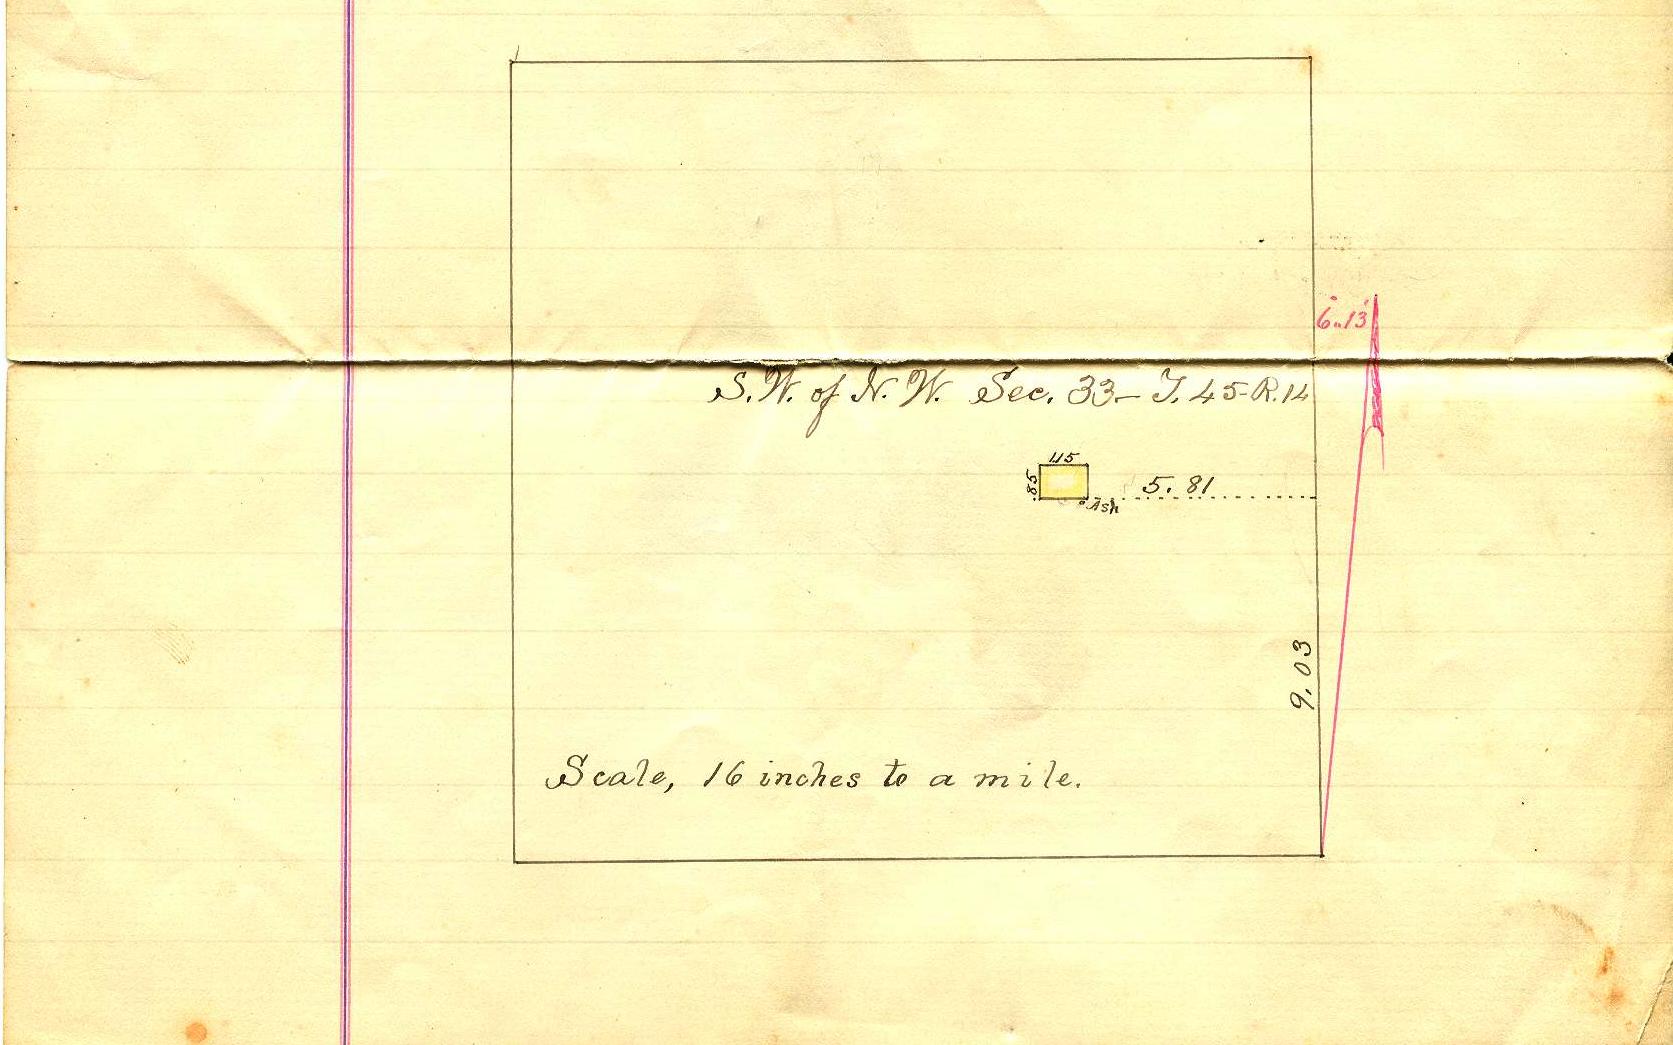 6.13
S.W. of N.W. Sec. 33 - T. 45 - R. 14
1.15
.85
5.81
Ash
9.03
Scale, 16 inches to a mile.